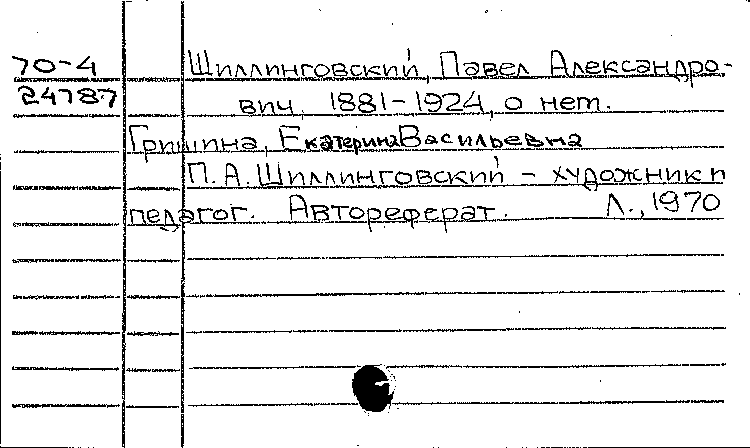 70-4 Шиллинговский, Павел Александро-
24787 вич, 1881-1924, о нем.
Гришина, Екатерина Васильевна
П.А. Шиллинговский - художник и
педагог. Автореферат. Л., 1970